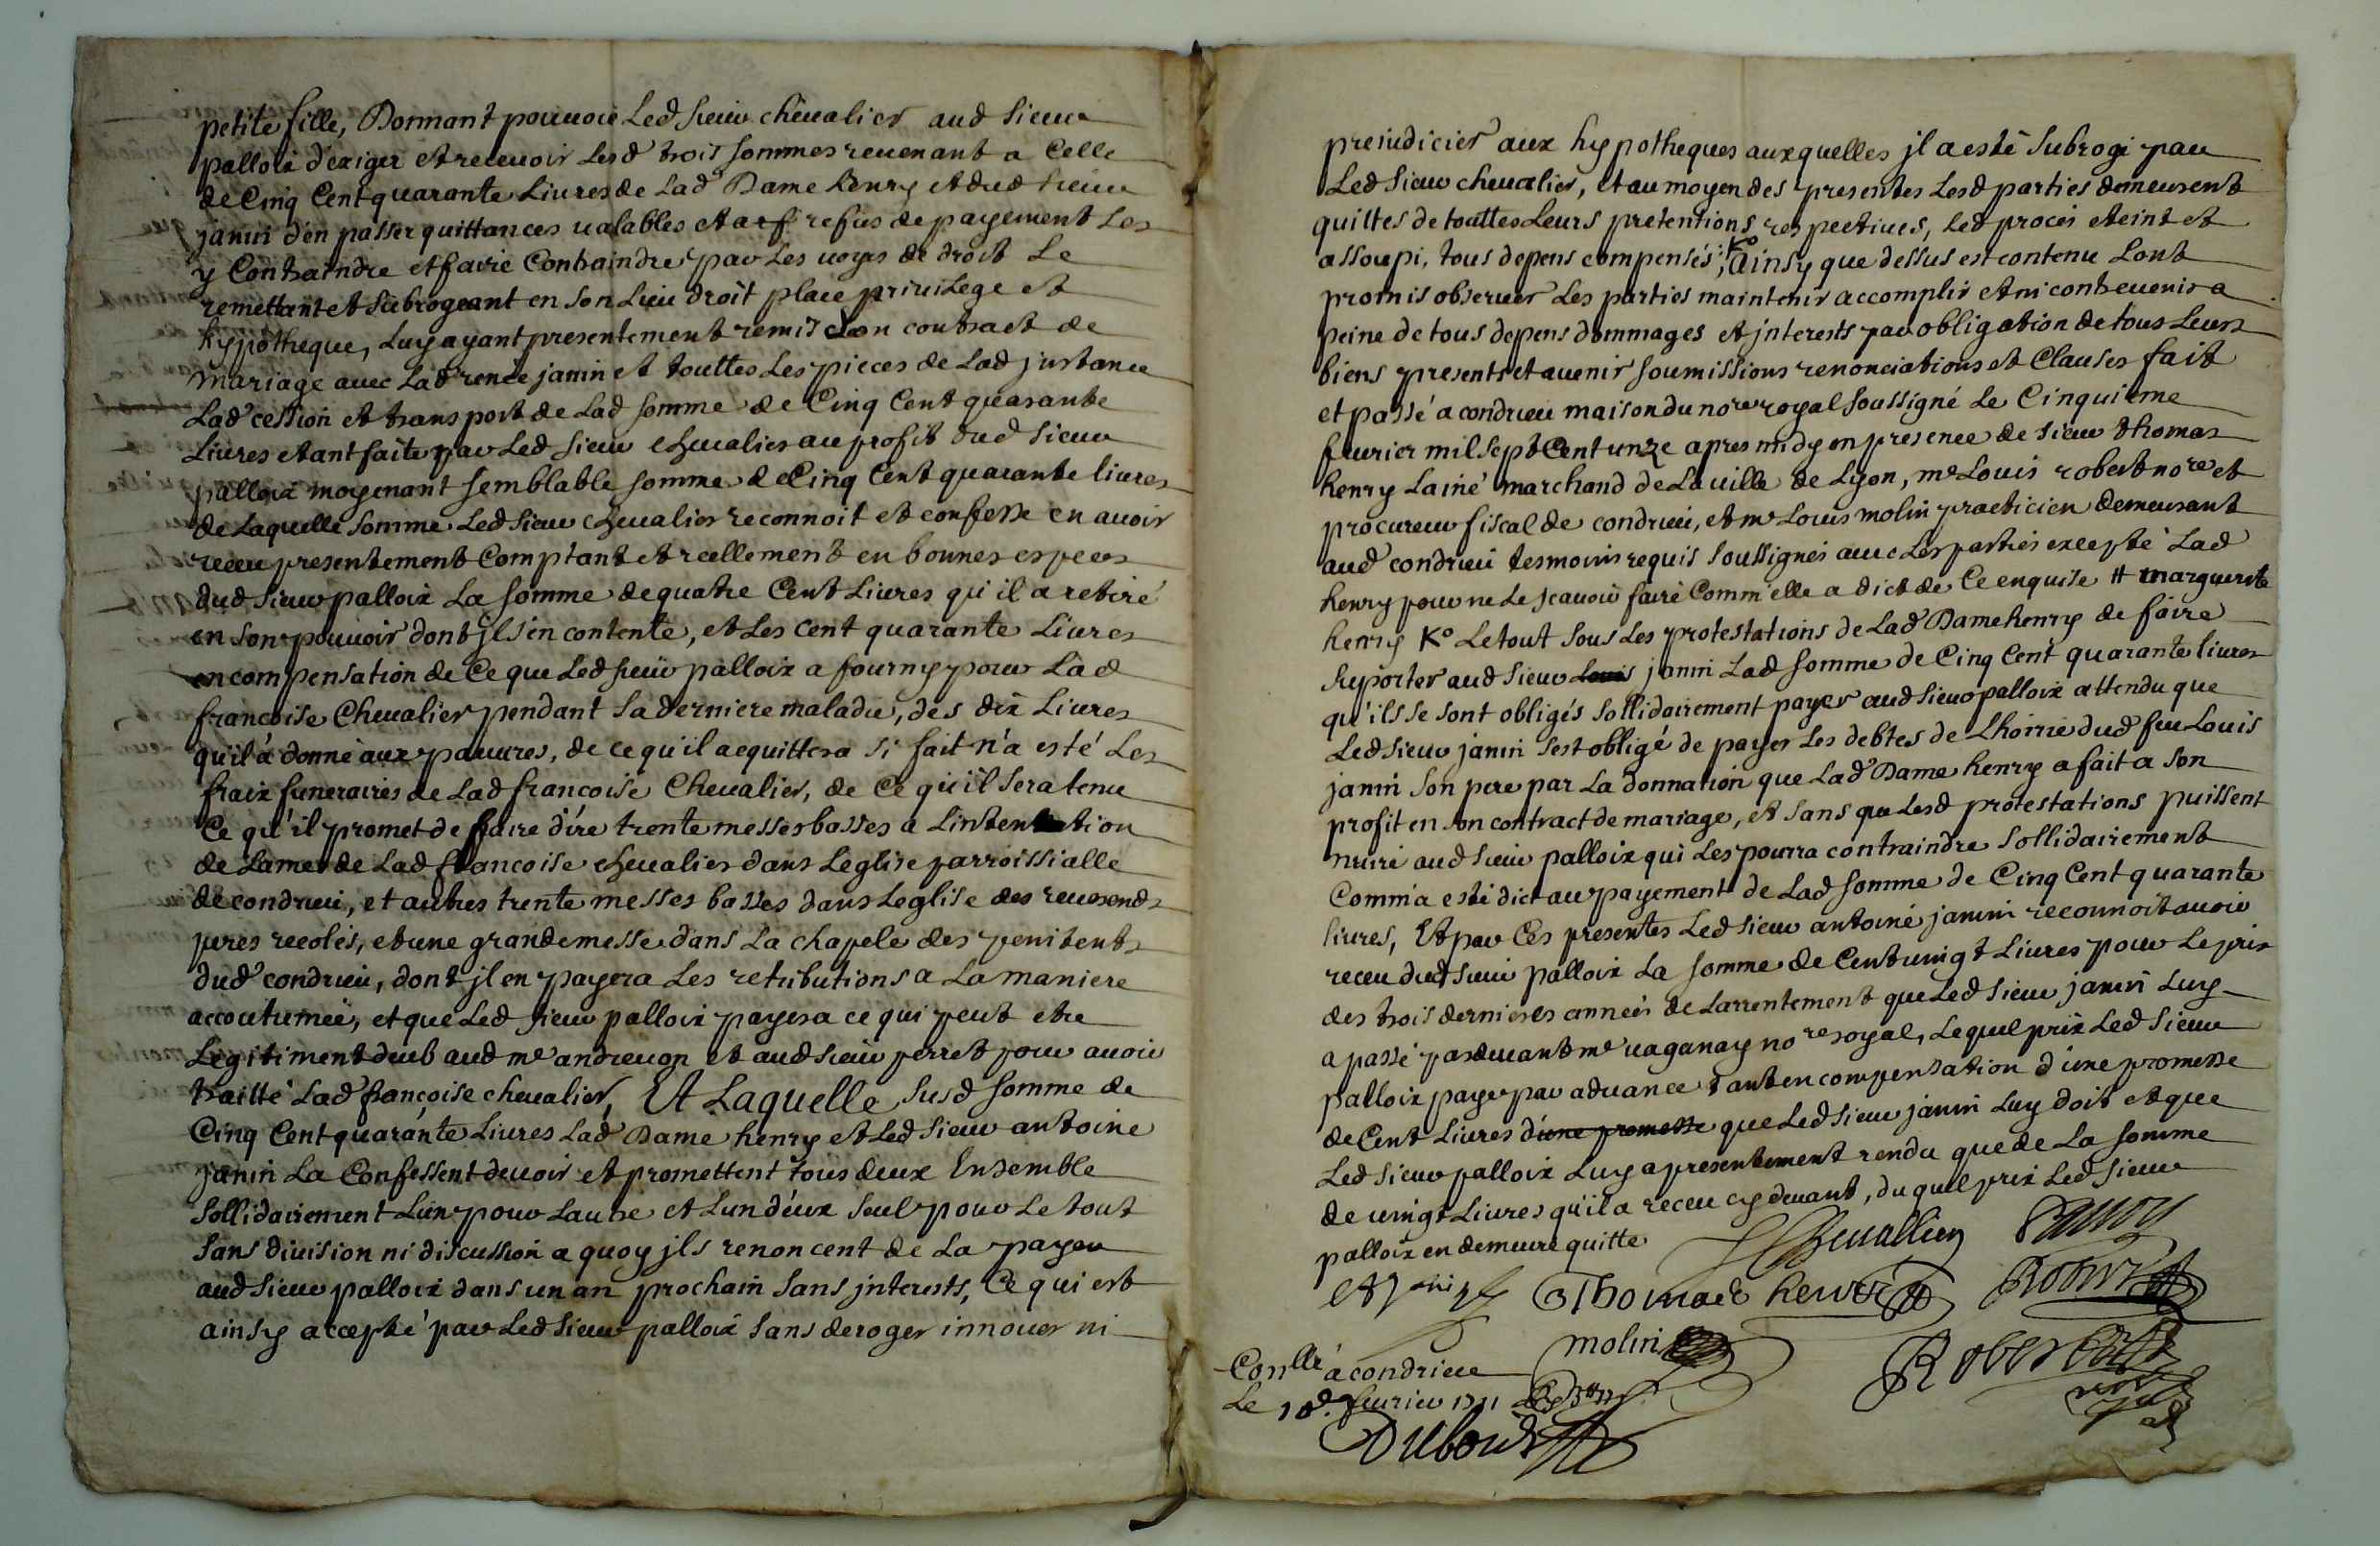 petite fille, Donnant pouuoir Led sieur cheualier aud sieur
palloix d'exiger et receuoir Lesd trois sommes reuenant a Celle
de Cinq Cent quarante Liures de Lad Dame henry et dud sieur
janin d'en passer quittances ualables et a refus de payement Les
y Contraindre et faire Contraindre par Les uoyes de droit Le
remettant et subrogeant en son Lieu droit place priuilege et
hypotheque, Luy ayant presentement remis son contract de
mariage auec Lad renée janin et touttes Les pieces de Lad jnstance
Lad cession et transport de Lad somme de Cinq Cent quarante
Liures etant faite par Led sieur cheualier au profit dud sieur
palloix moyenant semblable somme de Cinq Cent quarante liures
de Laquelle somme Led sieur cheualier reconnoit et confesse en auoir
receu presentement Comptant et reellement en bonnes especes
dud sieur palloix La somme de quatre Cent Liures qu'il a retiré
en son pouuoir dont jl s'en contente, et Les cent quarante Liures
en compensation de Ce que Led sieur palloix a fourny pour Lad
francoise Cheualier pendant sa derniere maladie, des dix Liures
qu'il a donné aux pauures, de ce qu'il acquittera si fait n'a esté Les
fraix funeraires de Lad francoise Cheualier, de Ce qu'il sera tenu
Ce qu'il promet de faire dire trente messes basses a L'intention
de Lame de Lad francoise cheualier dans Leglise parroissialle
de condrieu, et autres trente messes basses dans Leglise des reuerends
peres recolés, et une grande messe dans La chapele des penitents
dud condrieu, dont jl en payera Les retributions a La maniere
accoutumée, et que Led sieur palloix payera ce qui peut etre
Legitiment deub aud me andreuon et aud sieur perret pour auoir
traitté Lad françoise cheualier, Et Laquelle susd somme de
Cinq Cent quarante Liures Lad Dame henry et Led sieur antoine
janin La Confessent deuoir et promettent tous deux Ensemble
sollidairement L'un pour L'autre et L'un d'eux seul pour Le tout
sans diuision ni discussion a quoy jls renoncent de La payer
aud sieur palloix dans un an prochain sans jnterests, Ce qui est
ainsy accepté par Led sieur palloix sans deroger innouer ni
prejudicier aux hypotheques auxquelles jl a esté subrogé par
Led sieur cheualier, et au moyen des presentes Lesd parties demeurent
quittes de touttes Leurs pretentions respectiues, Led procés eteint et
assoupi, tous depens compensés; K° ainsy que dessus est contenu L'ont
promis obseruer Les parties maintenir accomplir et ni contreuenir a
peine de tous depens dommages et jnterests par obligation de tous Leurs
biens presents et auenir soumissions renonciations et Clauses fait
et passé a condrieu maison du nore royal soussigné Le Cinquieme
feurier mil sept Cent unze apres midy en presence de sieur thomas
henry Lainé marchand de La uille de Lyon, me Louis robert nore et
procureur fiscal de condrieu, et me Louis molin practicien demeurant
aud condrieu tesmoins requis soussignés auec Les parties excepté Lad
henry pour ne Le scauoir faire Comm'elle a dict de Ce enquise # marguerite
henry K° Le tout sous Les protestations de Lad Dame henry de faire
suporter aud sieur Louis janin Lad somme de Cinq Cent quarante liures
qu'ils se sont obligés sollidairement payer aud sieur palloix attendu que
Led sieur janin s'est obligé de payer Les debtes de L'hoirie dud feu Louis
janin son pere par La donnation que Lad Dame henry a fait a son
profit en son contract de mariage, et sans que Lesd protestations puissent
nuire aud sieur palloix qui Les pourra contraindre sollidairement
Comm'a esté dict au payement de Lad somme de Cinq Cent quarante
liures, Et par Ces presentes Led sieur antoine janin reconnoit auoir
receu dud sieur palloix La somme de Cent uingt Liures pour Le prix
des trois dernieres années de L'arrentement que Led sieur janin Luy
a passé pardeuant me uaganay nore royal, Lequel prix Led sieur
palloix paye par aduance tant en compensation d'une promesse
de Cent Liures d'une promesse que Led sieur janin Luy doit et que
Led sieur palloix Luy a presentement rendu que de La somme
de uingt Liures qu'il a receu cy deuant, du quel prix Led sieur
palloix en demeure quitte
Cheuallier
Thomas henry Robert
molin
Robert
Conllé a condrieu
Le 10e feurier 1711
Dubour